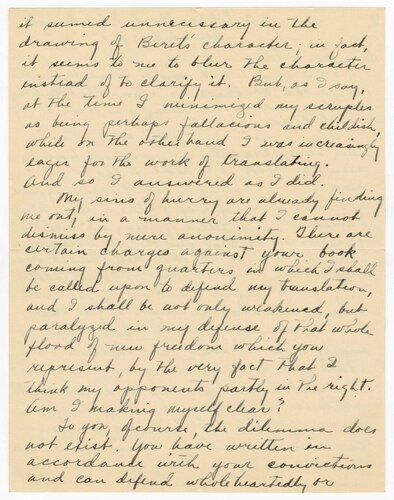 it seemed unnecessary in the
drawing of Berit's character; in fact,
it seems to me to blur the character
instead of to clarify it. But, as I say,
at the time I minimized my scruples
as being perhaps fallacious and childish,
while on the other hand I was increasingly
eager for the work of translating.
And so I answered as I did.
My sins of hurry are already finding
me out, in a manner that I cannot
dismiss by mere anonimity. There are
certain charges against your book
coming from quarters in which I shall
be called upon to defend my translation,
and I shall be not only weakened, but
paralyzed in my defense of that whole
flood of new freedom which you
represent, by the very fact that I
think my opponents partly in the right.
Am I making myself clear?
To you, of course, the dilemma does
not exist. You have written in
accordance with your convictions
and can defend wholeheartedly or